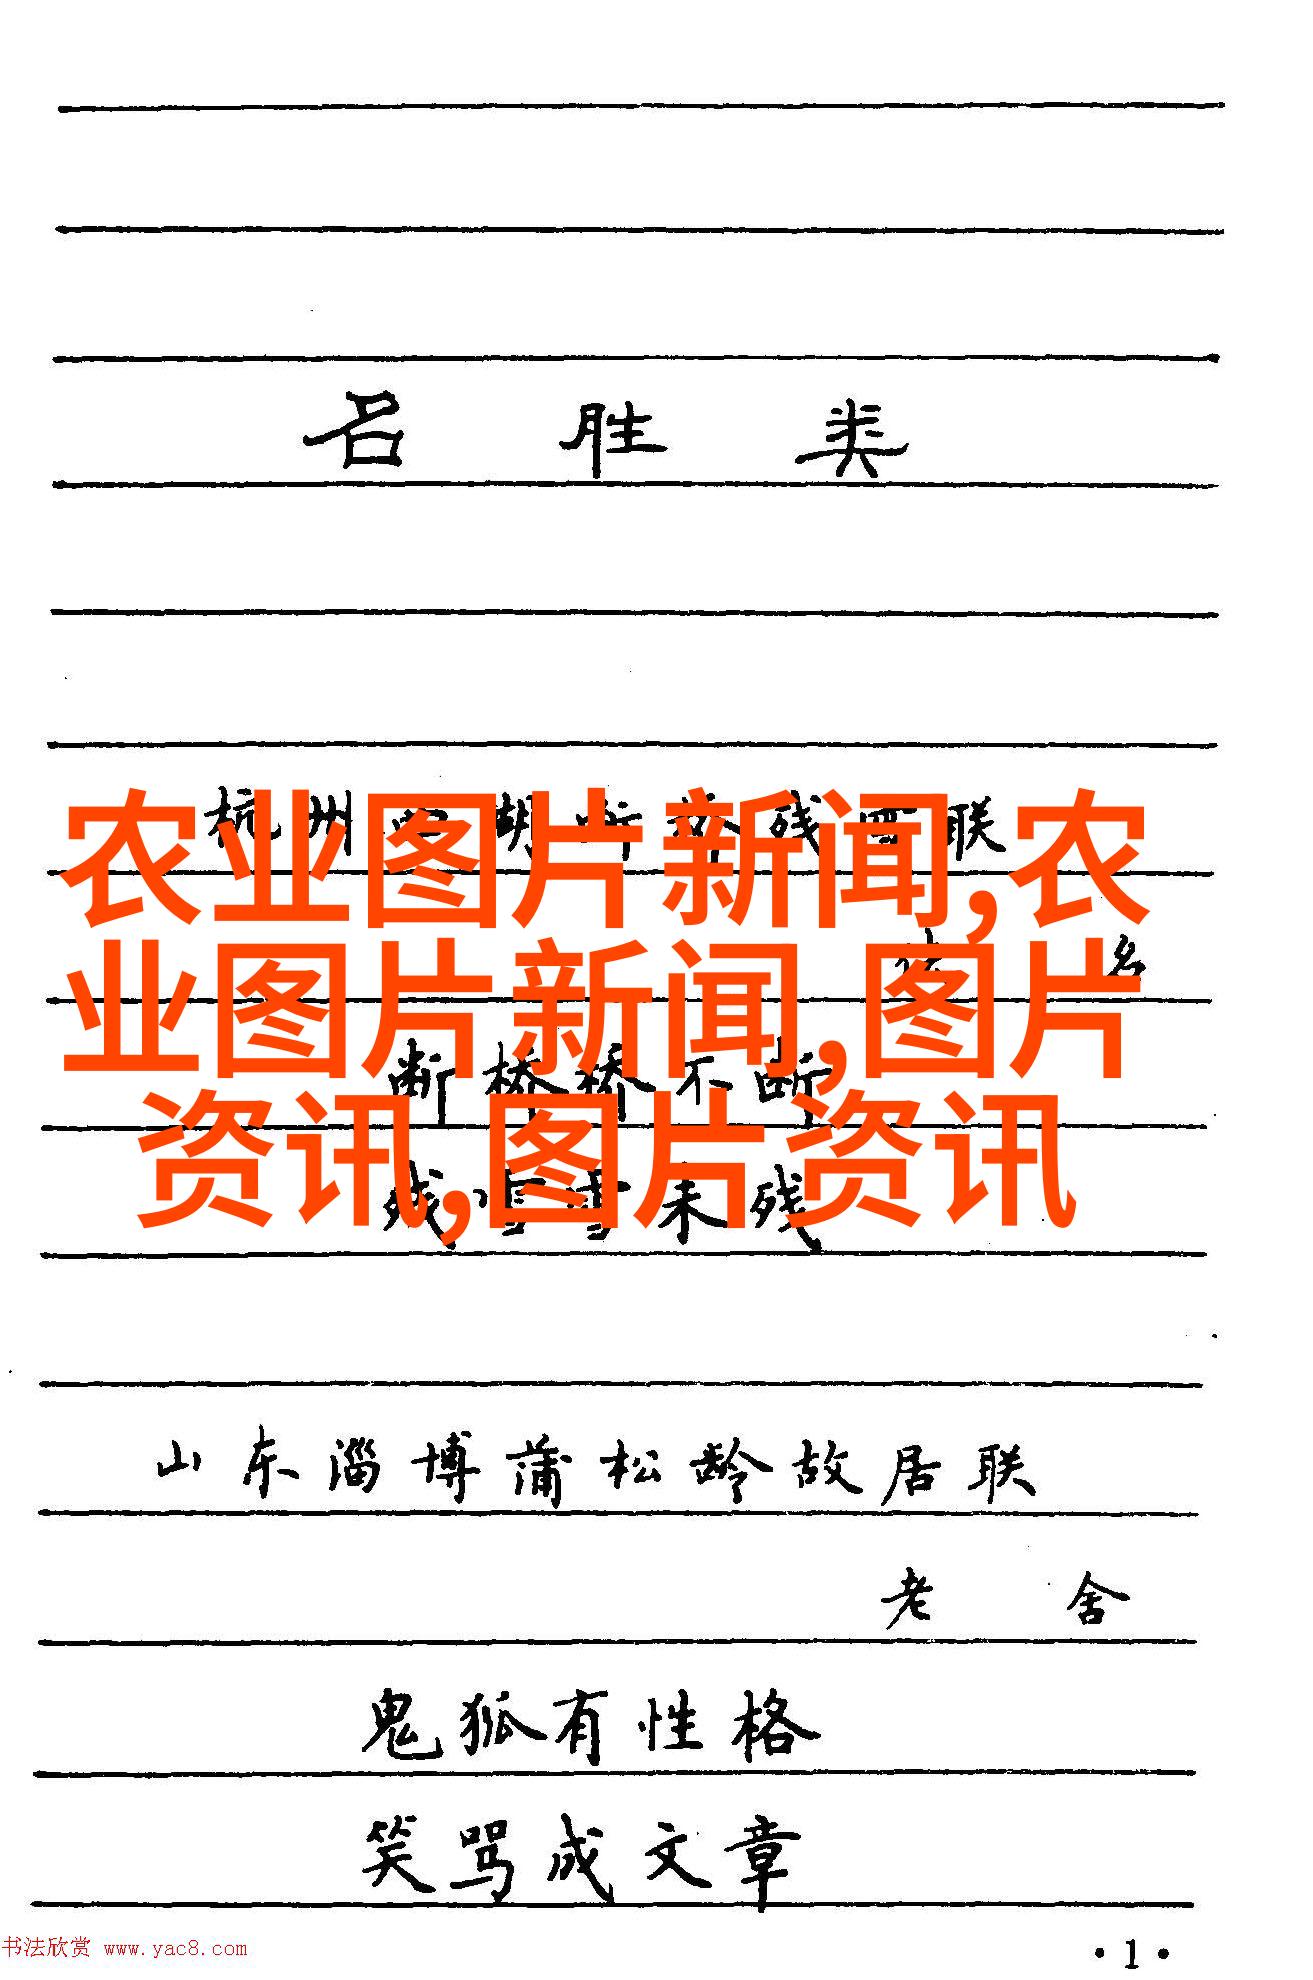 名胜类
杭州西湖断桥残雪联
农业图片新闻,农
业图片新闻,图片
资讯,图片资讯
断桥桥不断
残雪雪未残
山东淄博蒲松龄故居联
老舍
鬼狐有性格
笑骂成文章
书法欣赏 www.yac8.com
·1·